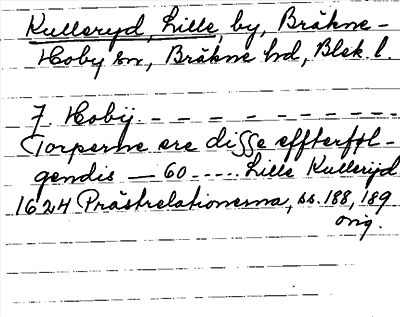 Kulleryd, Lille, by, Bräkne-
Hoby sn, Bräkne hd, Blek. l.
J. Hobÿ. – – – – – – – – –
Torperne ere disse effterføl-
gendis — 60 ----. Lille Kullerijd
1624 Prästrelationerna, ss. 188, 189
orig.